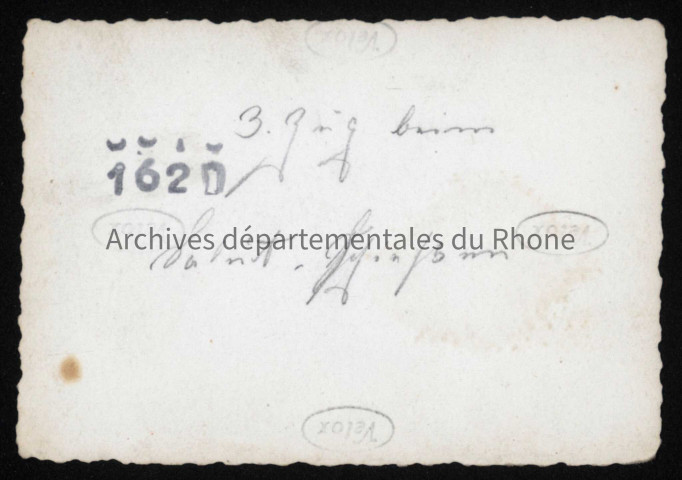 VELOX
3. Zug beim
1620
VELOX
Archives départementales du Rhone
VELOX
Salut-Schießen
VELOX